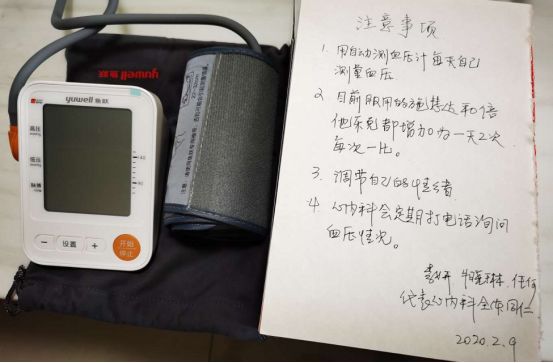 yuwell
yuwell 鱼跃
高压
低压
脉搏
设置
开始
停止
22-32cm
注意事项
1. 用自动测血压计每天自己
测量血压
2. 目前服用的施慧达和倍
他乐克都增加为一天2次
每次一片。
3. 调节自己的情绪
4. 心内科会定期打电话询问
血压情况。
代表心内科全体同仁
2020.2.9